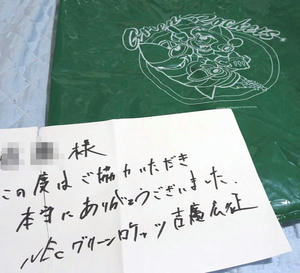 Green Rockets
様
この度はご協力いただき
本当にありがとうございました。
NECグリーンロケッツ 吉廣広征